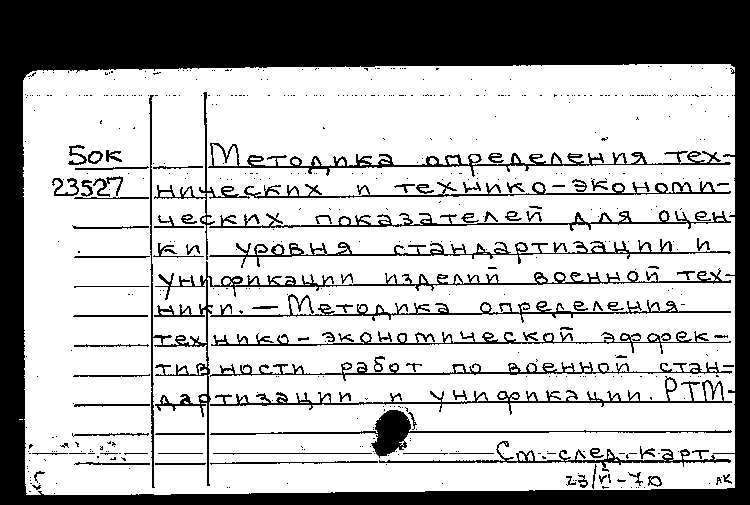 Бок Методика определения тех-
23527 нических и технико-экономи-
ческих показателей для оцен-
ки уровня стандартизации и
унификации изделий военной тех-
ники. — Методика определения
технико-экономической эффек-
тивности работ по военной стан-
дартизации и унификации. РТМ-
См. след. карт.